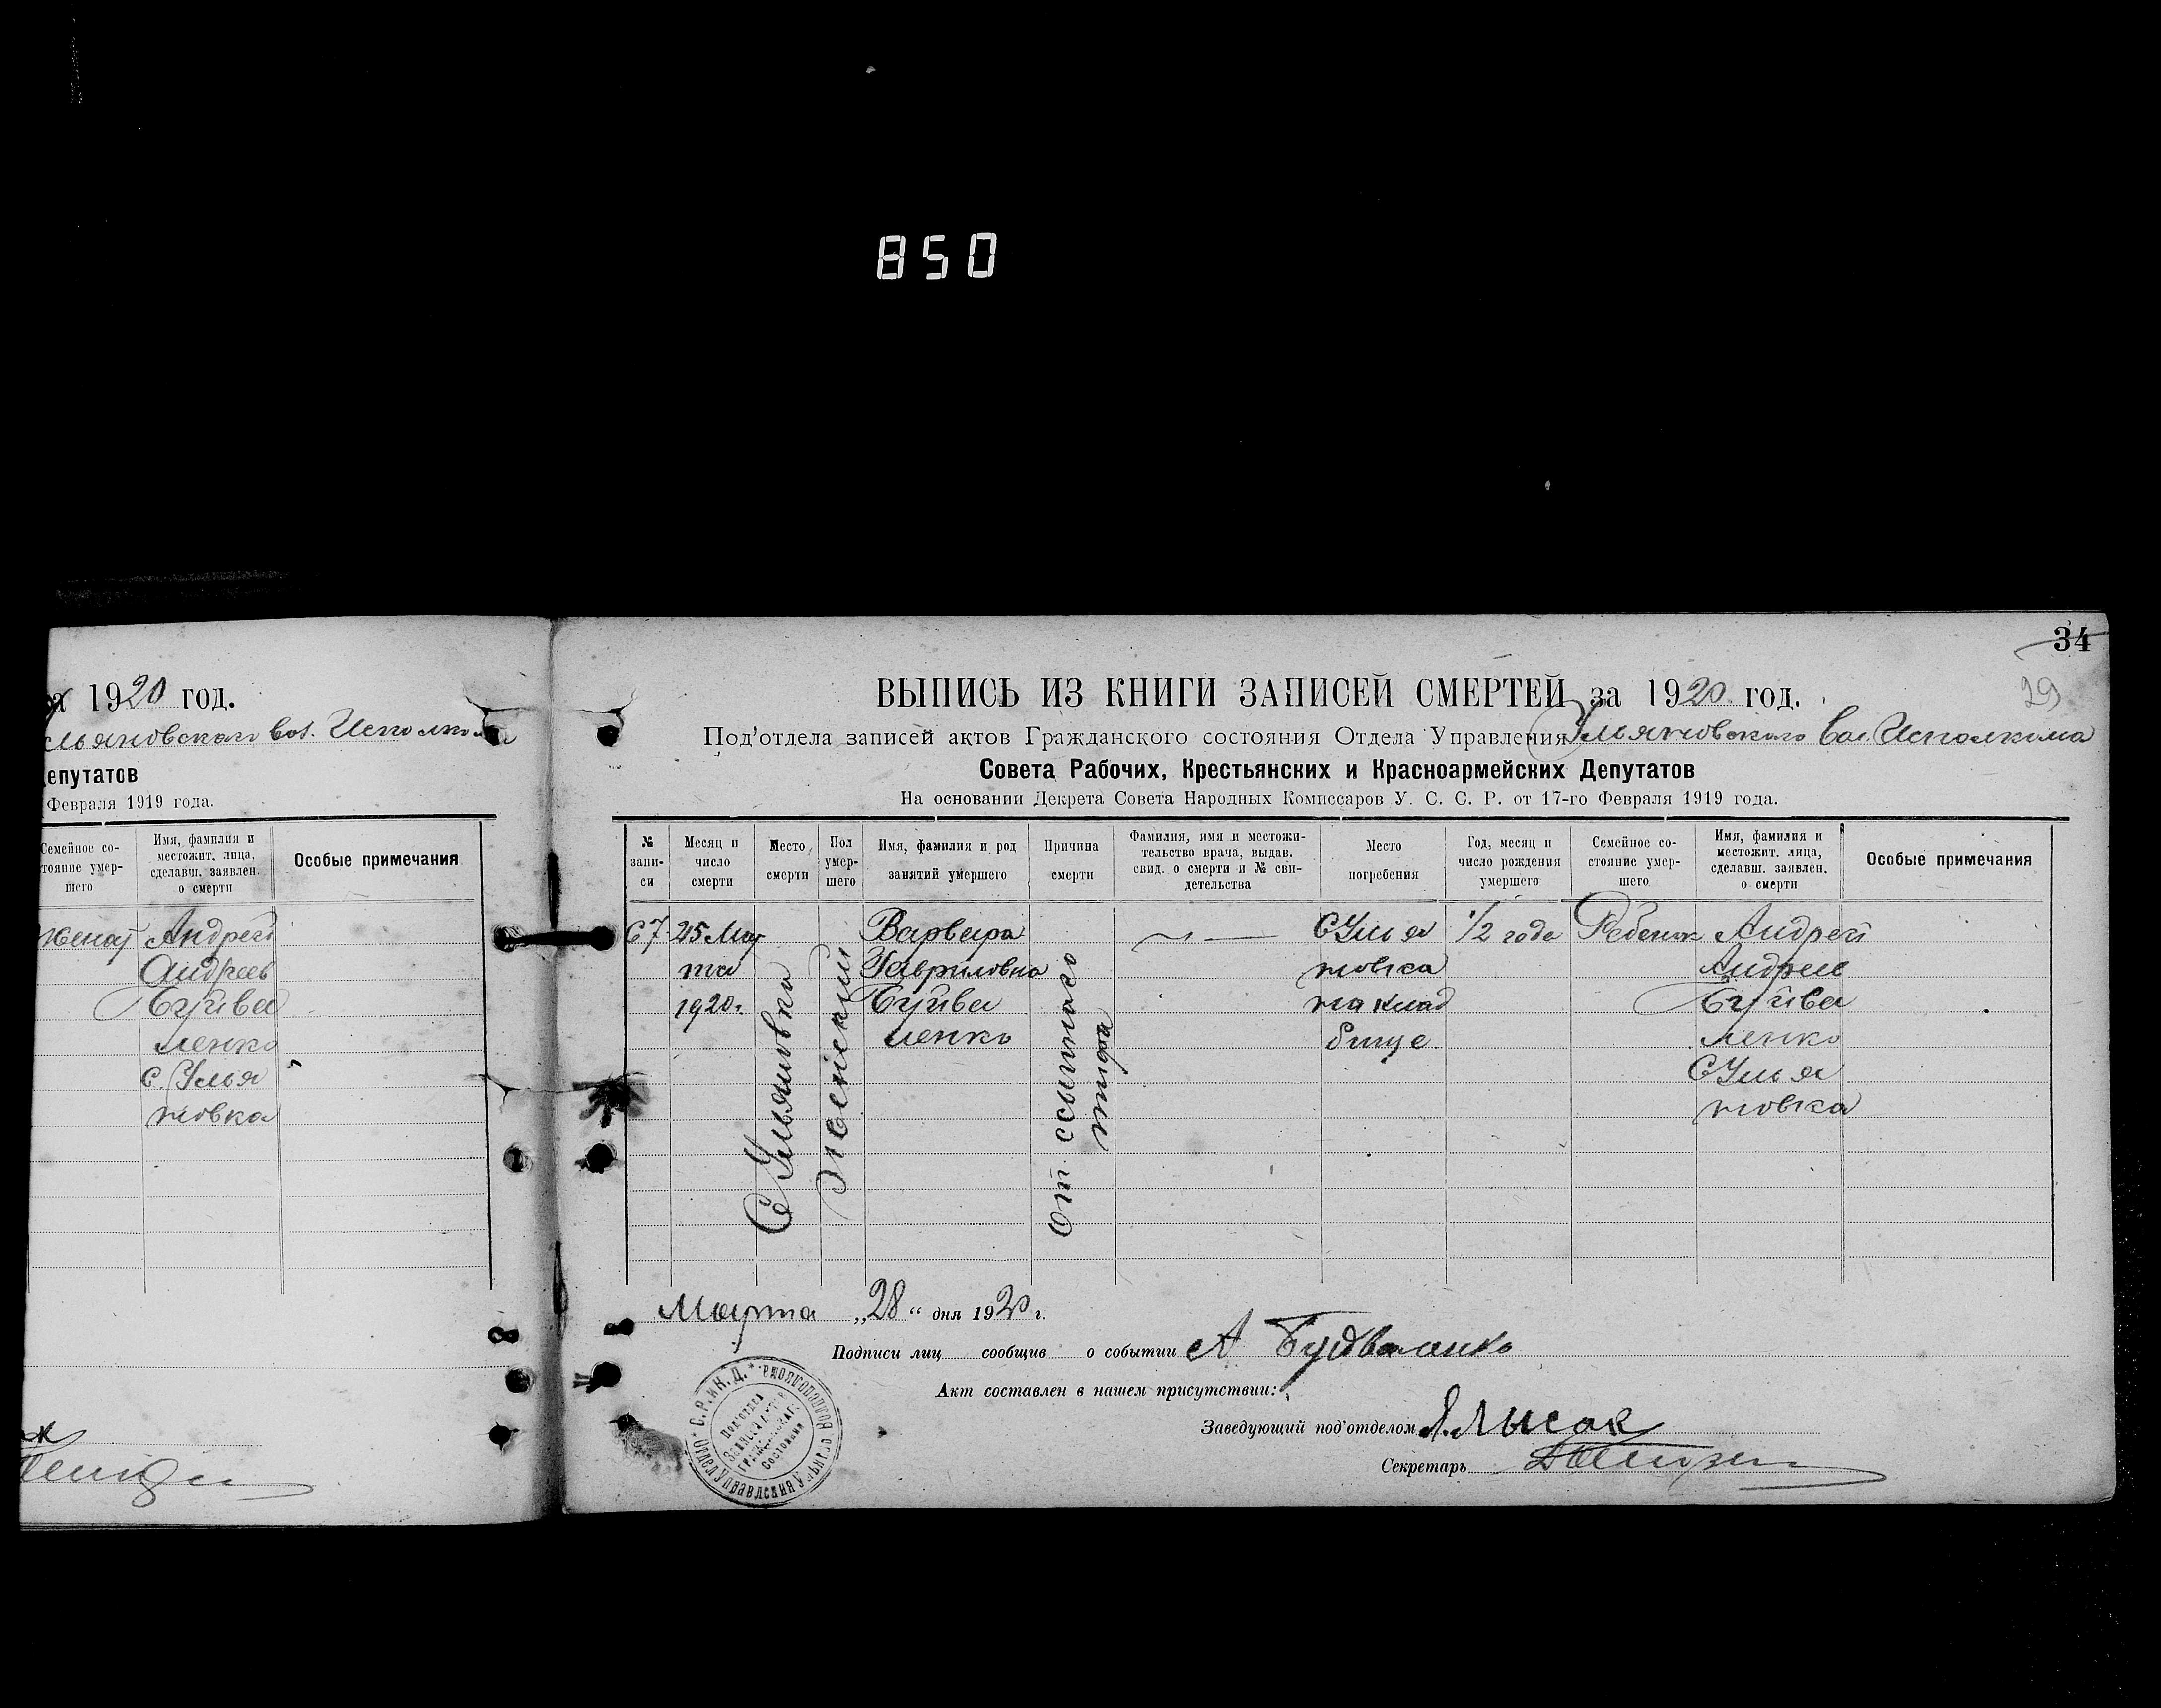 850
1920 год.
льяновскаго вол. Исполко
епутатов
Февраля 1919 года.
Семейное со-
тояние умер-
шего
Имя, фамилия и
местожит. лица,
сделавш. заявлен.
о смерти
Особые примечания
женат
Андрей
Андреев
Буйва
ленко
С. Улья
новка
34
29
ВЫПИСЬ ИЗ КНИГИ ЗАПИСЕЙ СМЕРТЕЙ за 1920 год.
Под'отдела записей актов Гражданского состояния Отдела Управления Ульяновскаго Вол. Исполкома
Совета Рабочих, Крестьянских и Красноармейских Депутатов
На основании Декрета Совета Народных Комиссаров У. С. С. Р. от 17-го Февраля 1919 года.
№
запи-
си
Месяц и
число
смерти
Место
смерти
Пол
умер-
шего
Имя, фамилия и род
занятий умершего
Причина
смерти
Фамилия, имя и местожи-
тельство врача, выдав.
свид. о смерти и № сви-
детельства
Место
погребения
Год, месяц и
число рождения
умершего
Семейное со-
стояние умер-
шего
Имя, фамилия и
местожит. лица,
сделавш. заявлен.
о смерти
Особые примечания
67
25 Мар
та
1920.
С Ульяновка
Женский
Варвара
Гавриловна
Буйва
ленко
От ссыпнаго
тифа
С Улья
новка
на клад
бище
1/2 года
Ребенок
Андрей
Андрее
Буйва
ленко
С Улья
новка
Марта „28“ дня 1920 г.
Подписи лиц сообщив о событии А Буйваленко
Акт составлен в нашем присутствии:
Заведующий под'отделом Я. Лысак
Секретарь
С.Р.и К.Д.
Отдел Управления
Под'отдел
Записи Актов
Гражданскаг.
Состояния